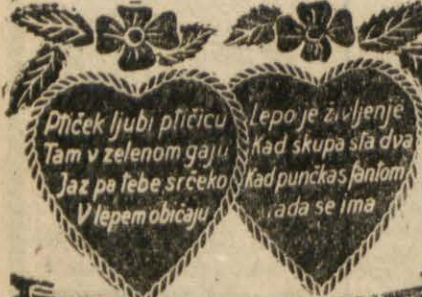 Ptiček ljubi ptičicu
Tam v zelenom gaju
Jaz pa tebe srčeko
V lepem običaju
Lepo je življenje
Kad skupa sta dva
Kad punčka s fantom
rada se ima